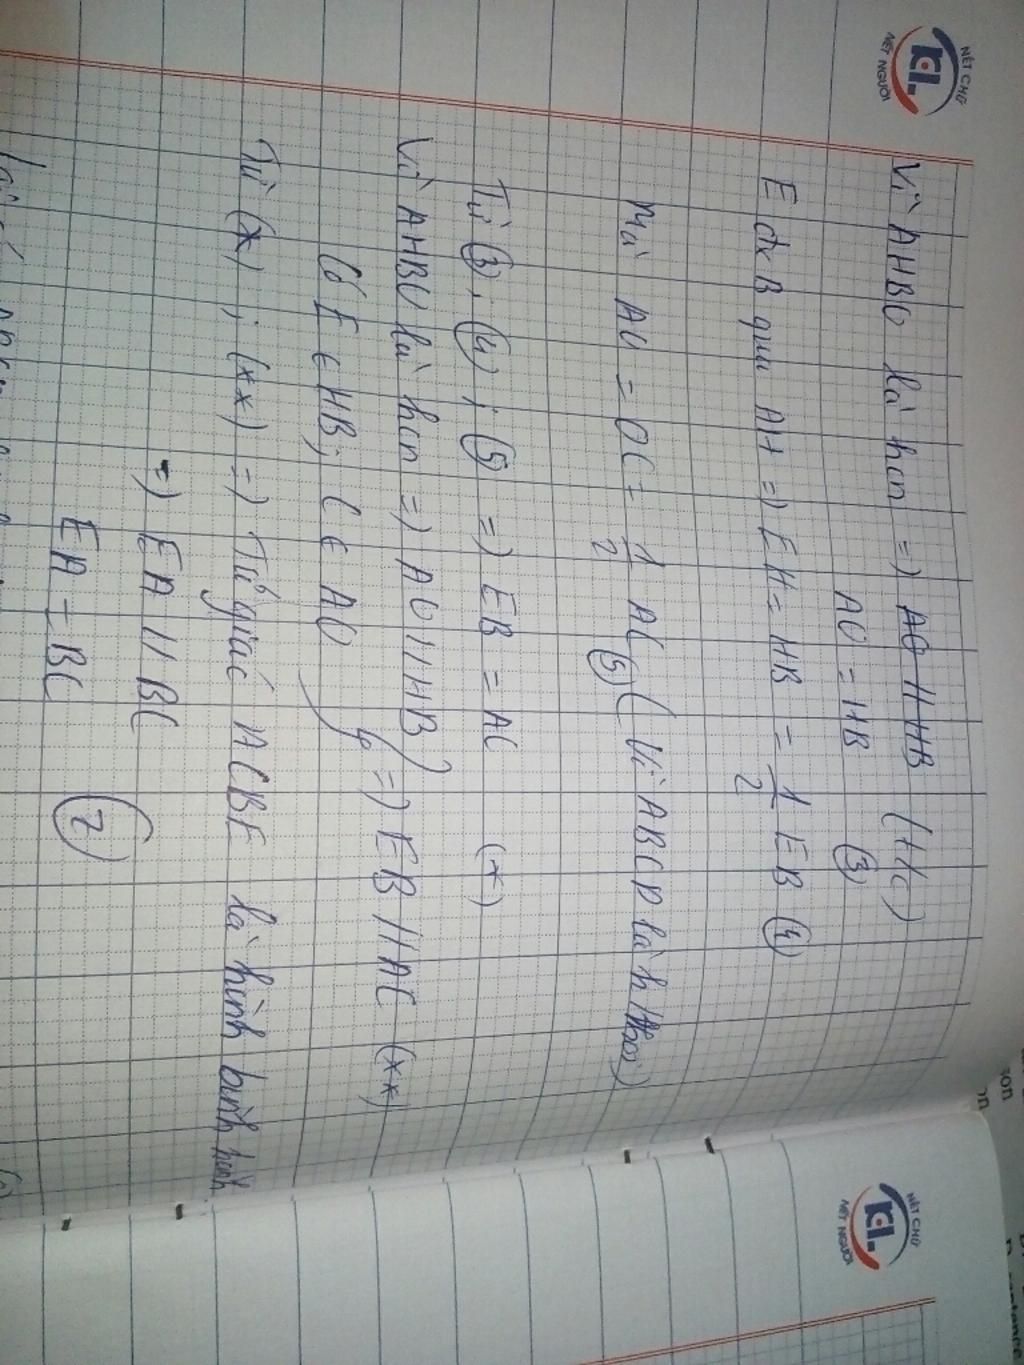 NÉT CHỮ
NẾT NGƯỜI
Vì AHBO là hcn => AO // HB (t/c)
AO = HB (3)
E đx B qua AH => EH = HB = 1/2 EB (4)
mà AO = OC = 1/2 AC (Vì ABCD là h thoi)
(5)
Từ (3), (4), (5) => EB = AC (*)
Vì AHBO là hcn => AO // HB
Có E ∈ HB; C ∈ AO } => EB // AC (**)
Từ (*); (**) => Tứ giác ACBE là hình bình hành
=> EA // BC
EA = BC (7)
NÉT CHỮ
NẾT NGƯỜI